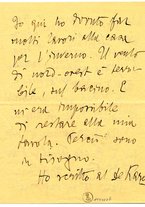 Io qui ho dovuto far
molti lavori alla casa
per l'inverno. Il vento
di nord-ovest è terri-
bile, sul bacino. E
m'era impossibile
di restare alla mia
tavola. Perciò sono
in bisogno.
Ho scritto al